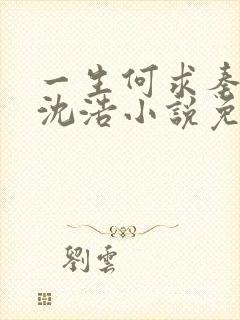 一生何求秦
沈浩小說免
劉雲